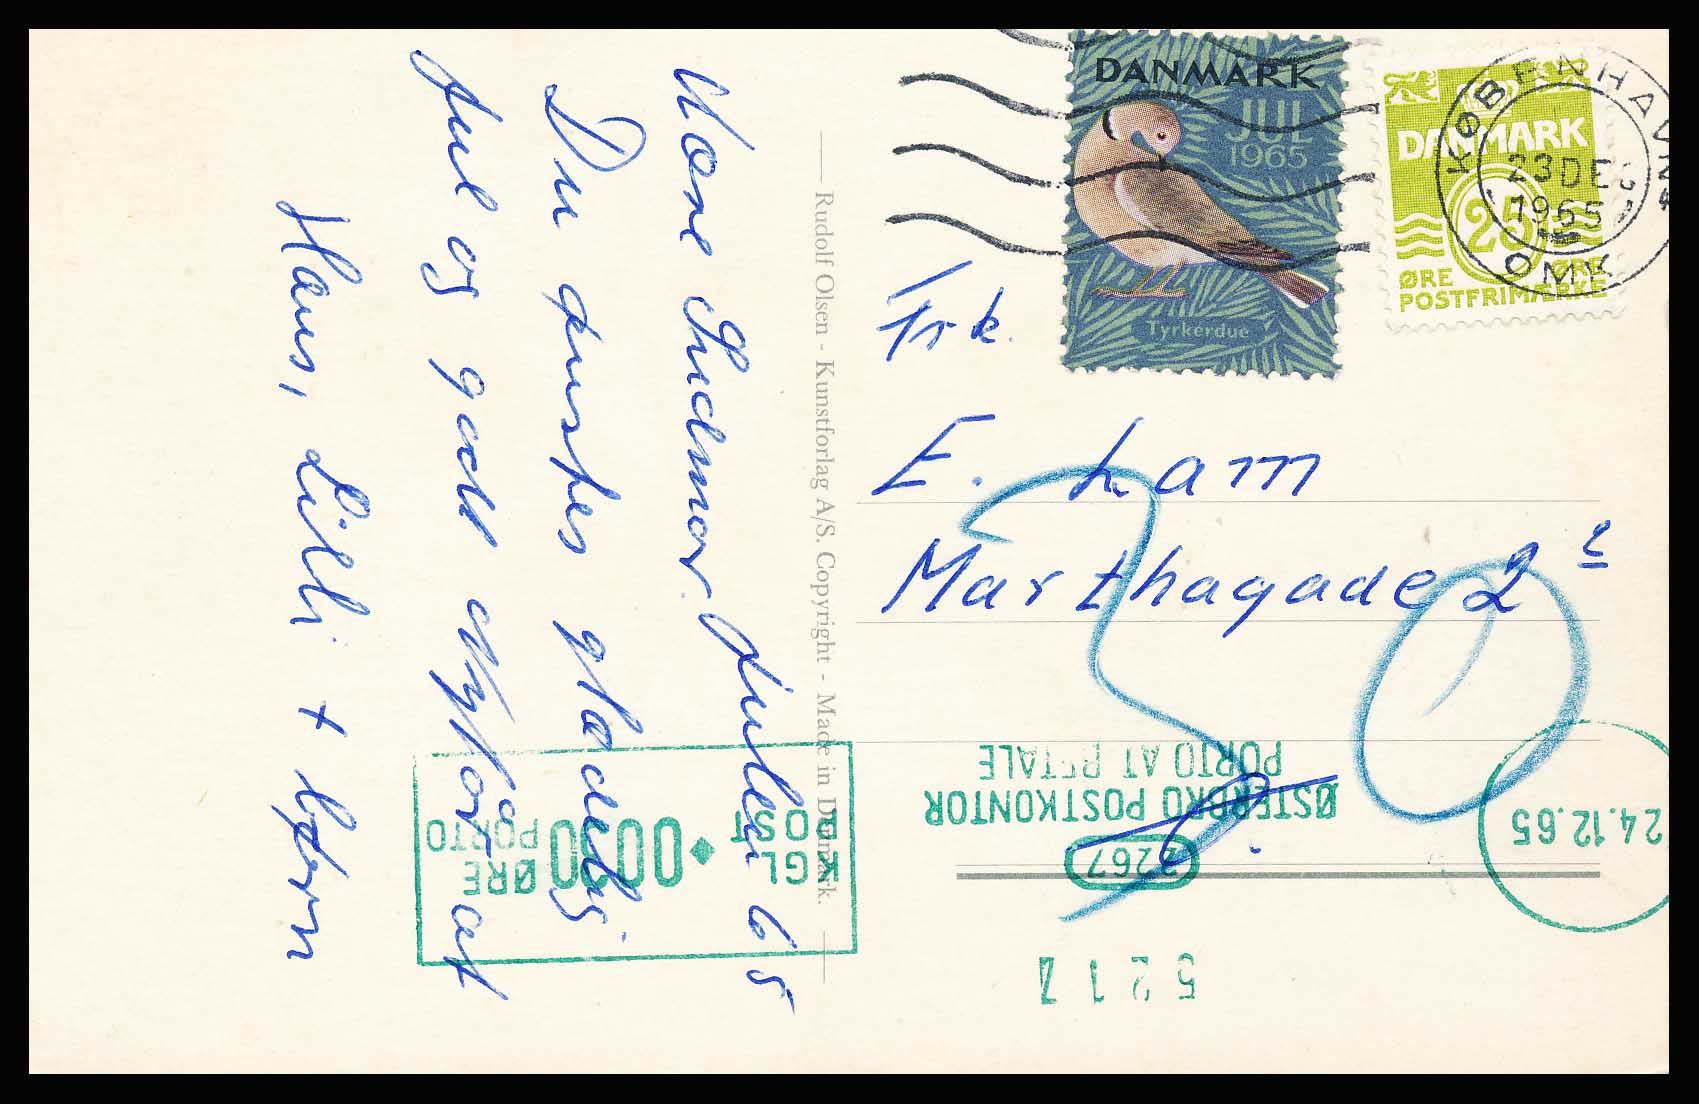 DANMARK
JUL
1965
Tyrkerdue
DANMARK
25
ØRE ØRE
POSTFRIMÆRKE
KØBENHAVN
23 DE
1965
OMK
Frk.
E. Lam
Marthagade 2²
30
Kære
Julen 65
Du ønskes glædelig
jul og godt Nytår af
Hans, Lilli + Bjørn
Rudolf Olsen - Kunstforlag A/S. Copyright - Made in Denmark.
PORTO AT BETALE
ØSTERBRO POSTKONTOR
2267
24.12.65
KGL
POST
000
ØRE
PORTO
5217